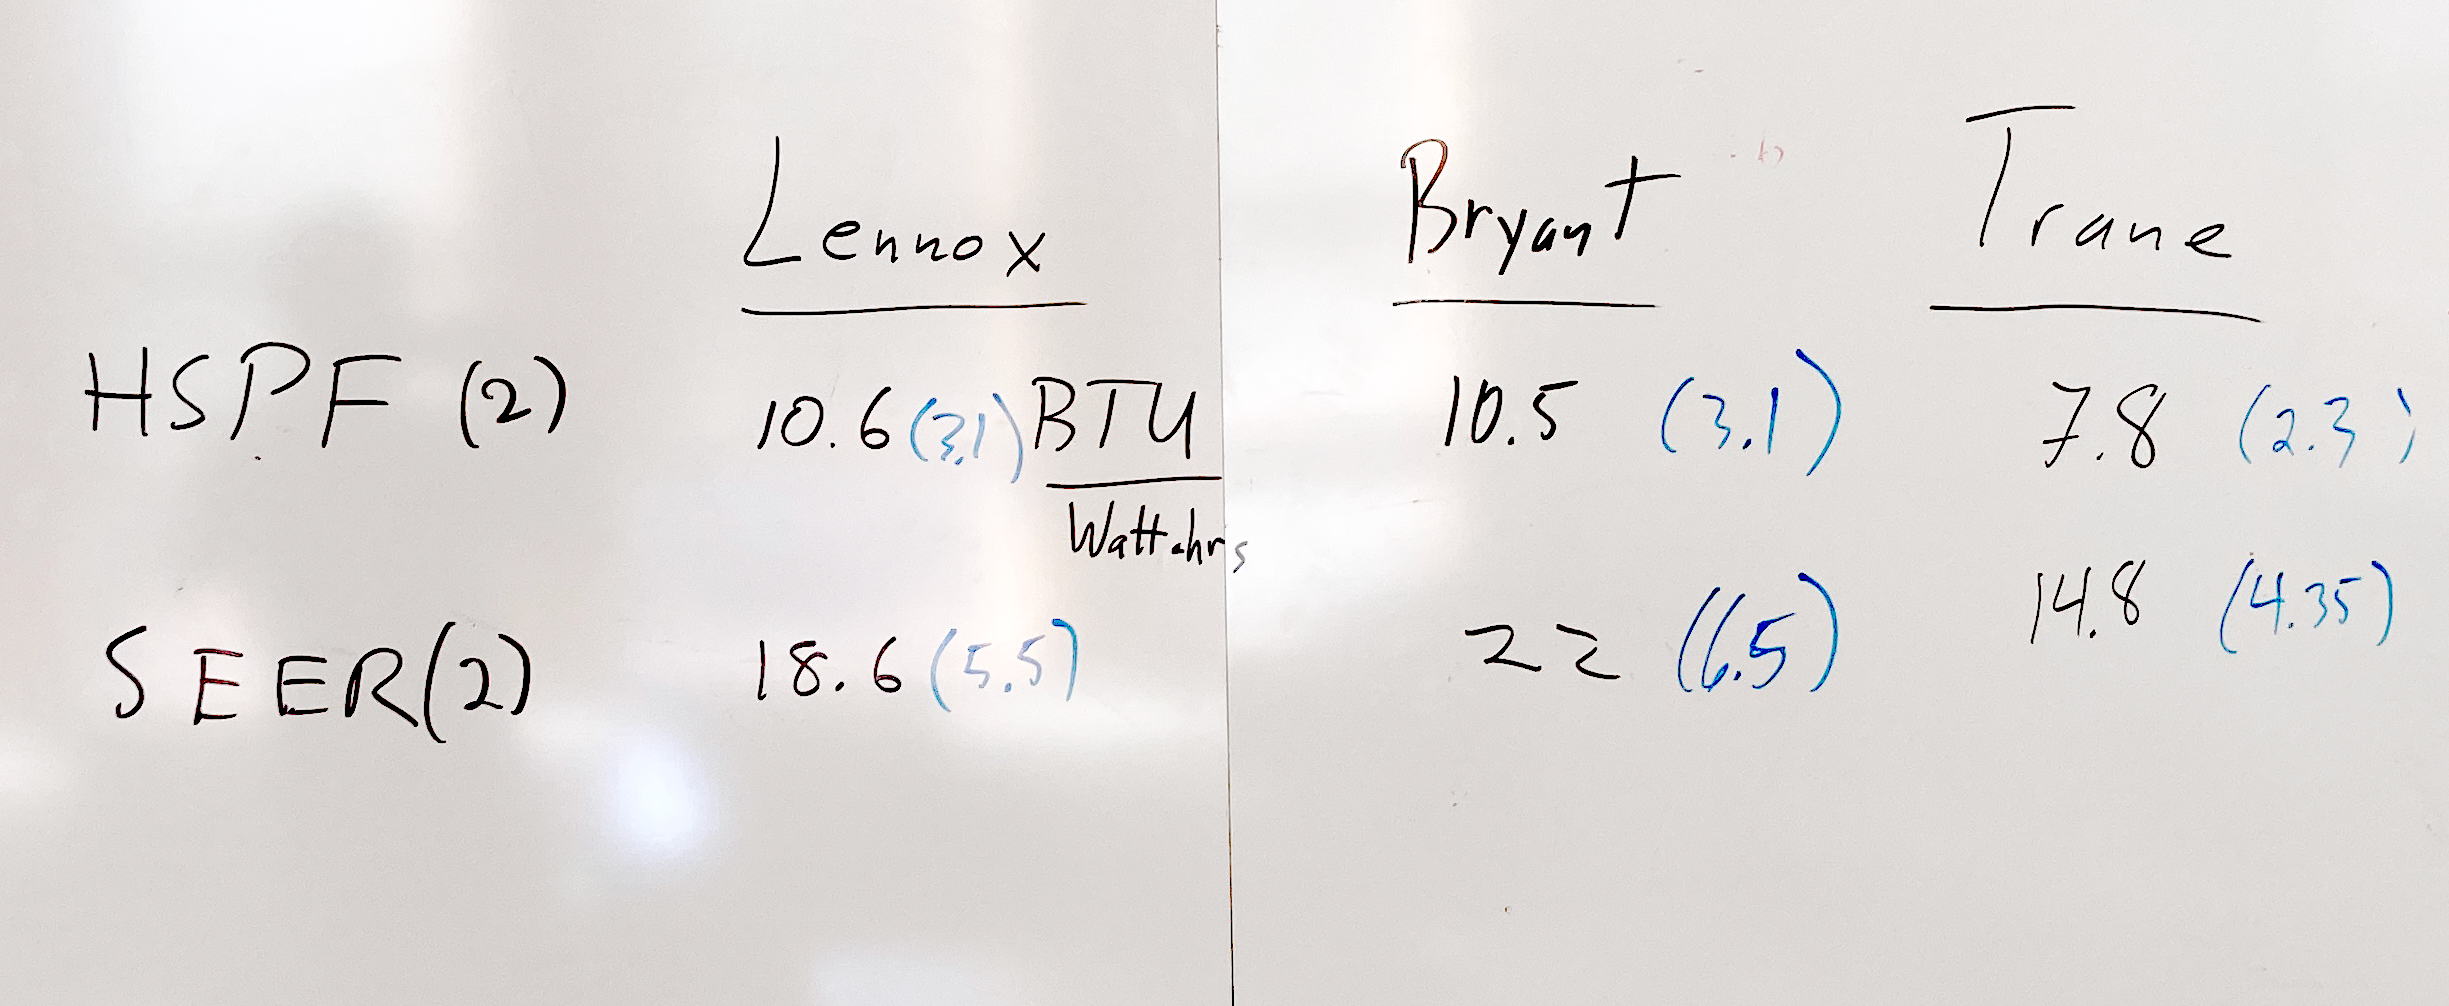 Lennox Bryant Trane
HSPF (2) 10.6 (3.1) BTU 10.5 (3.1) 7.8 (2.3)
Watt-hrs
SEER(2) 18.6 (5.5) 22 (6.5) 14.8 (4.35)